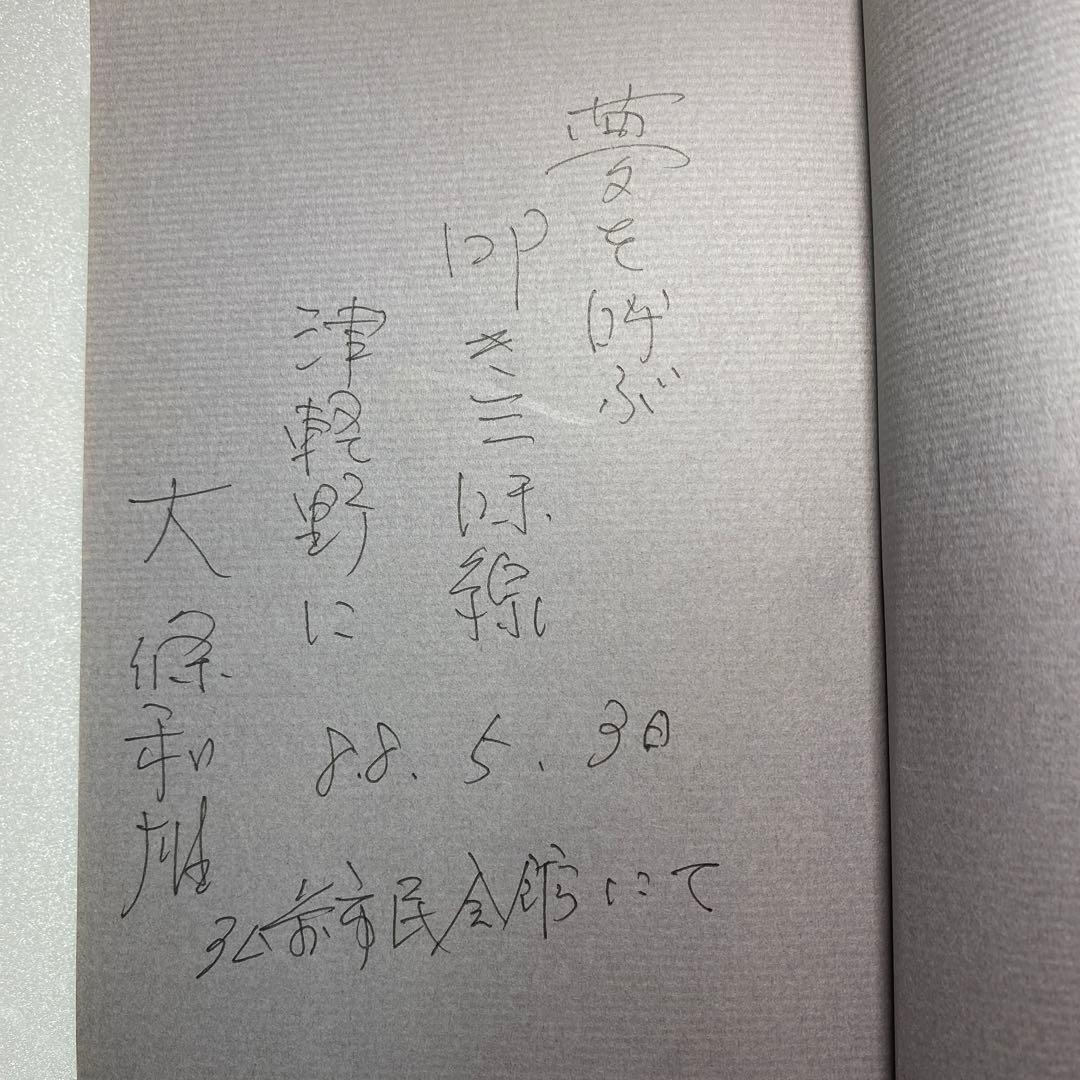 夢を呼ぶ
叩き三味線
津軽野に
大條和雄
88.5.3日
弘前市民会館にて